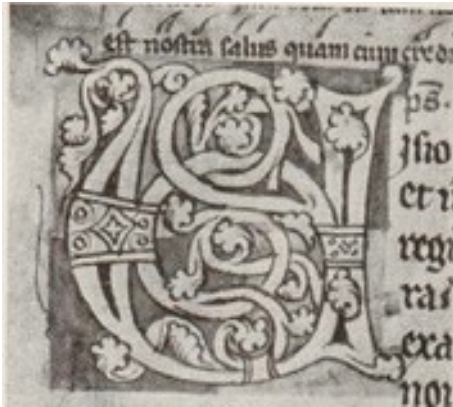 est nostra salus quam cum credi
ps̄.
Isio
et
regi
ras
exa
non